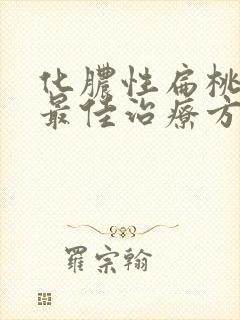 化膿性扁桃
最佳治療方
羅宗翰